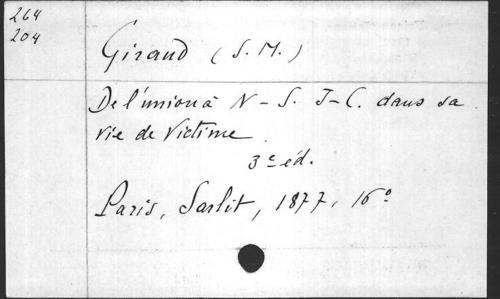 264
204
Giraud (S. M.)
De l'union à N-S. J-C. dans sa
vie de Victime.
3e éd.
Paris, Sarlit, 1877, 16o